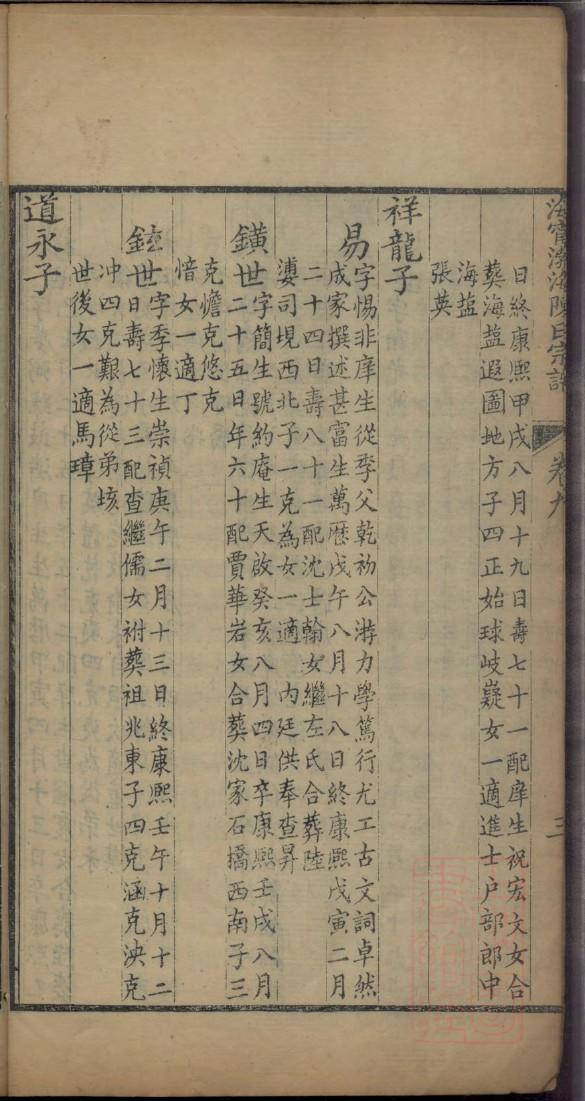 海寧渤海陳氏宗譜
卷九
三
日終康熙甲戌八月十九日壽七十一配庠生祝宏文女合
葬海盐遐圖地方子四正始球岐嶷女一適進士户部郎中
海盐
張英
祥龍子
易
字惕非庠生從季父乾初公游力學篤行尤工古文詞卓然
成家撰述甚富生萬歷戊午八月十八日終康熙戊寅二月
二十四日壽八十一配沈士翰女繼左氏合葬陸
漊司垷西北子一克為女一適 内廷供奉查昇
鐄世
字簡生號約庵生天啟癸亥八月四日卒康熙壬戌八月
二十五日年六十配賈華岩女合葬沈家石橋西南子三
克憺克悠克
愔女一適丁
世
字季懷生崇禎庚午二月十三日終康熙壬午十月十二
日壽七十三配查繼儒女祔葬祖兆東子四克涵克泱克
冲四克艱為從弟垓
世後女一適馬璋
道永子